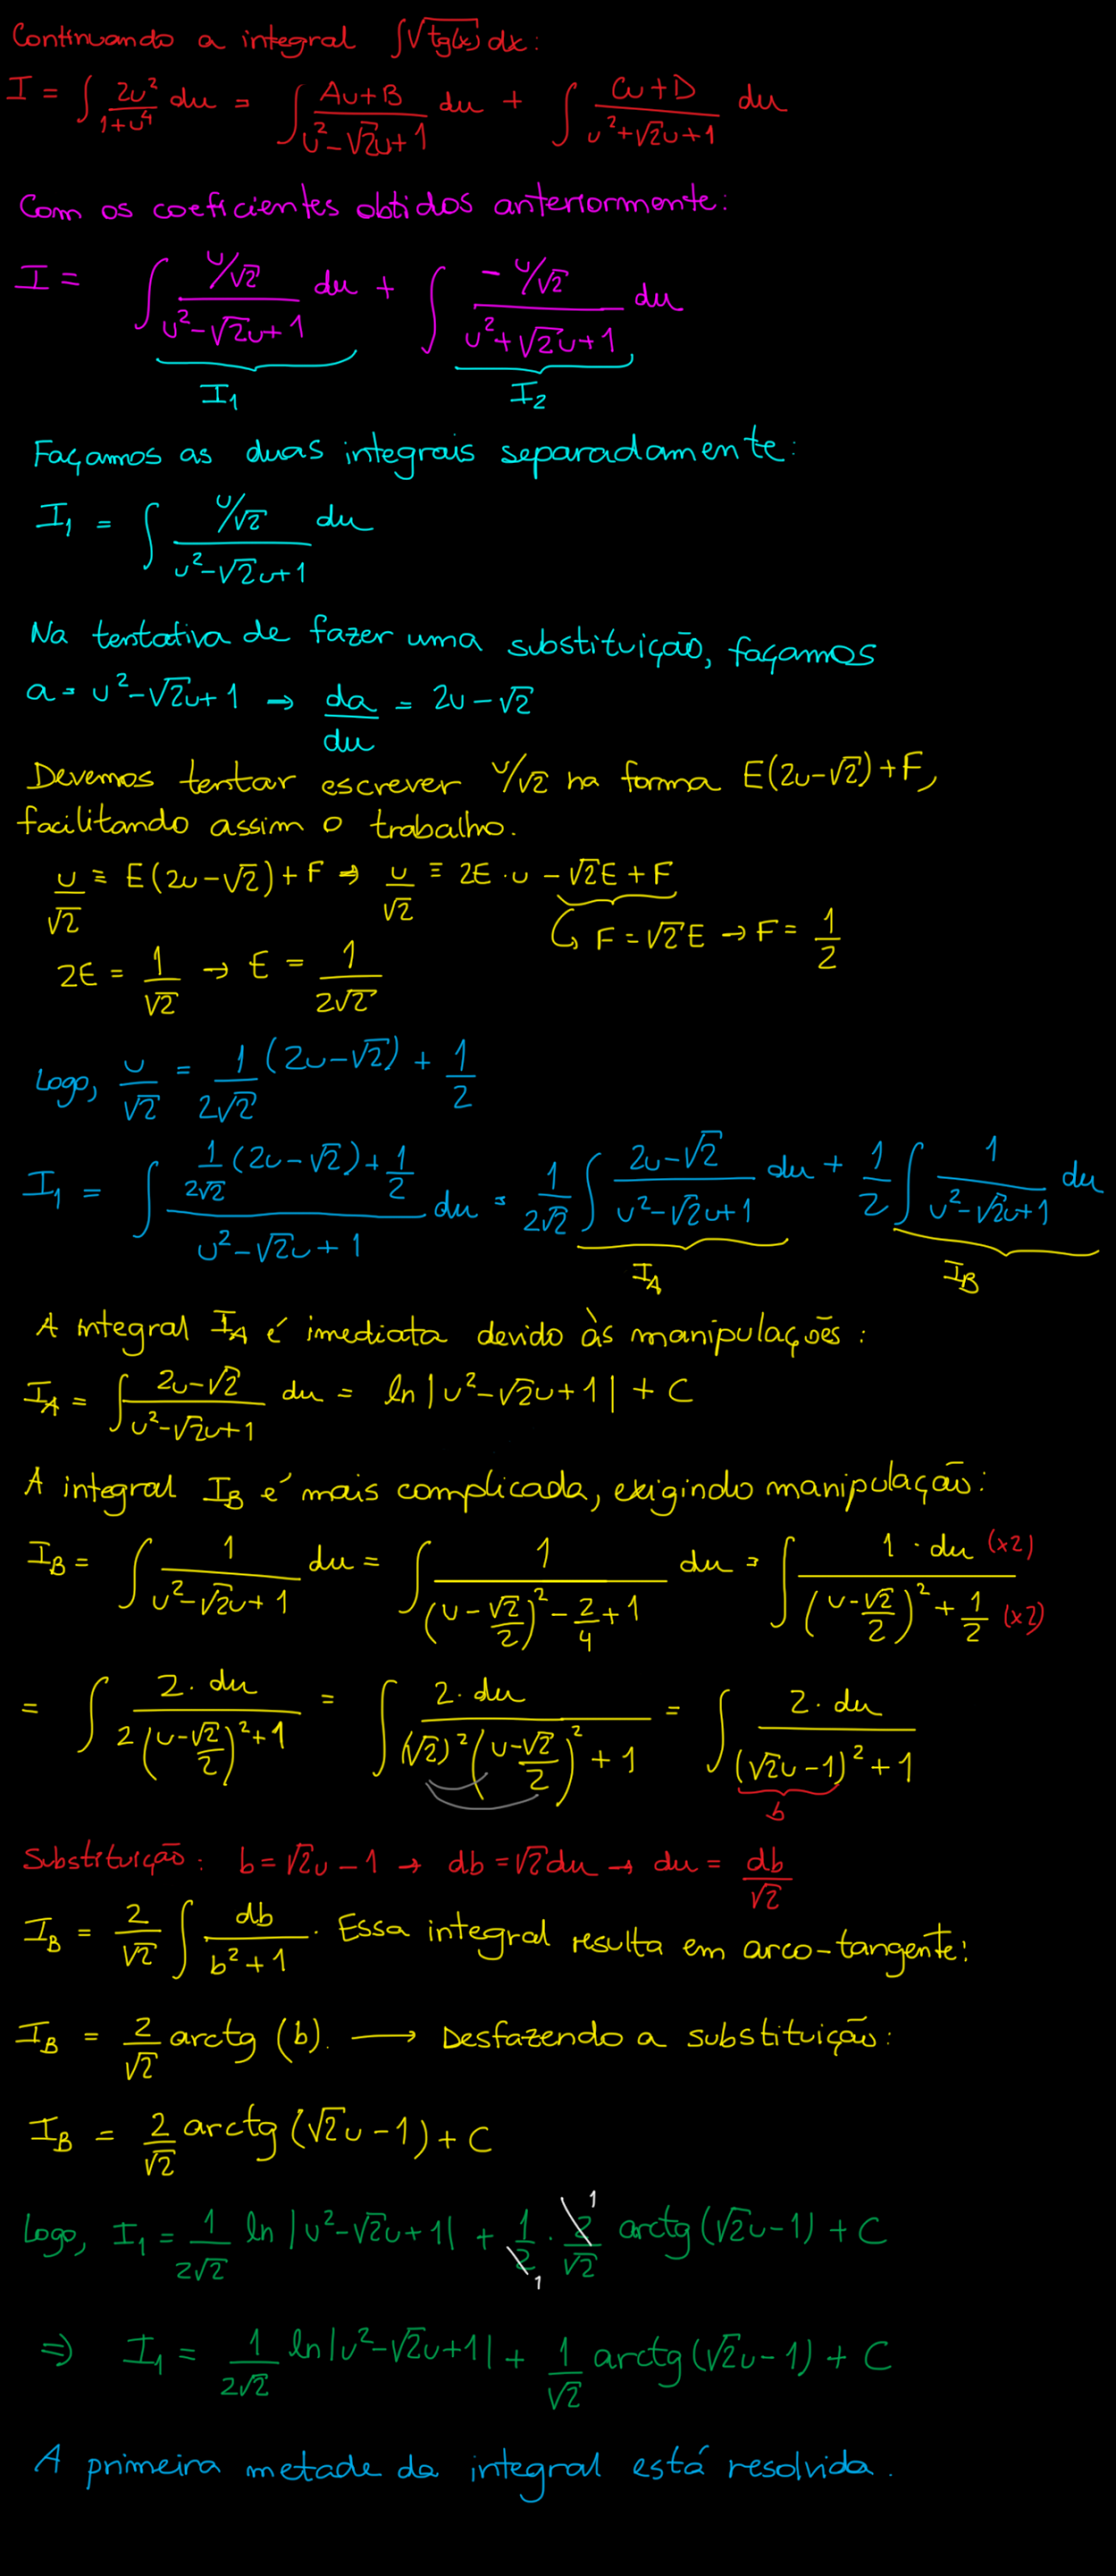 Continuando a integral ∫√tg(x) dx:
I = ∫ 2u²/(1+u⁴) du = ∫ (Au+B)/(u²-√2u+1) du + ∫ (Cu+D)/(u²+√2u+1) du
Com os coeficientes obtidos anteriormente:
I = ∫ (u/√2)/(u²-√2u+1) du + ∫ (-u/√2)/(u²+√2u+1) du
I₁ I₂
Façamos as duas integrais separadamente:
I₁ = ∫ (u/√2)/(u²-√2u+1) du
Na tentativa de fazer uma substituição, façamos
a = u²-√2u+1 → da/du = 2u-√2
Devemos tentar escrever u/√2 na forma E(2u-√2)+F,
facilitando assim o trabalho.
u/√2 ≡ E(2u-√2)+F → u/√2 ≡ 2E·u - √2E + F
↳ F = √2E → F = 1/2
2E = 1/√2 → E = 1/(2√2)
Logo, u/√2 = 1/(2√2) (2u-√2) + 1/2
I₁ = ∫ (1/(2√2) (2u-√2) + 1/2)/(u²-√2u+1) du = 1/(2√2) ∫ (2u-√2)/(u²-√2u+1) du + 1/2 ∫ 1/(u²-√2u+1) du
I_A I_B
A integral I_A é imediata devido às manipulações:
I_A = ∫ (2u-√2)/(u²-√2u+1) du = ln|u²-√2u+1| + C
A integral I_B é mais complicada, exigindo manipulação:
I_B = ∫ 1/(u²-√2u+1) du = ∫ 1/((u-√2/2)² - 2/4 + 1) du = ∫ 1·du (x2)/((u-√2/2)² + 1/2 (x2))
= ∫ 2·du/(2(u-√2/2)²+1) = ∫ 2·du/((√2)²(u-√2/2)²+1) = ∫ 2·du/((√2u-1)²+1)
b
Substituição: b = √2u-1 → db = √2du → du = db/√2
I_B = 2/√2 ∫ db/(b²+1). Essa integral resulta em arco-tangente:
I_B = 2/√2 arctg (b). ⟶ Desfazendo a substituição:
I_B = 2/√2 arctg (√2u-1) + C
Logo, I₁ = 1/(2√2) ln |u²-√2u+1| + 1/2 · 2/√2 arctg (√2u-1) + C
1 1
⇒ I₁ = 1/(2√2) ln|u²-√2u+1| + 1/√2 arctg(√2u-1) + C
A primeira metade da integral está resolvida.